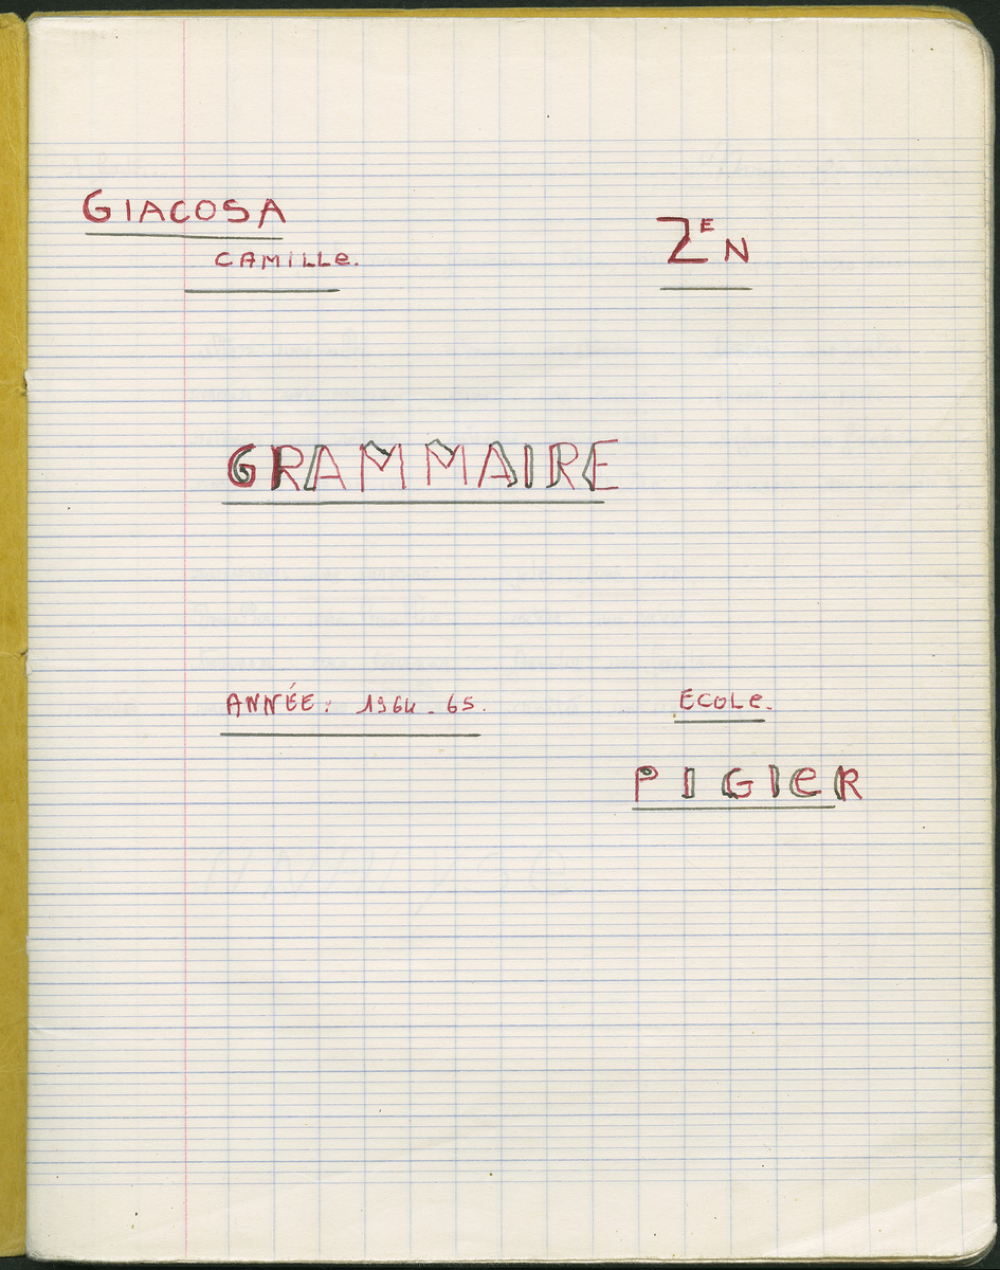 GIACOSA
CAMILLe.
2E N
GRAMMAIRE
ANNÉE: 1964-65.
ECOLe.
PIGIeR